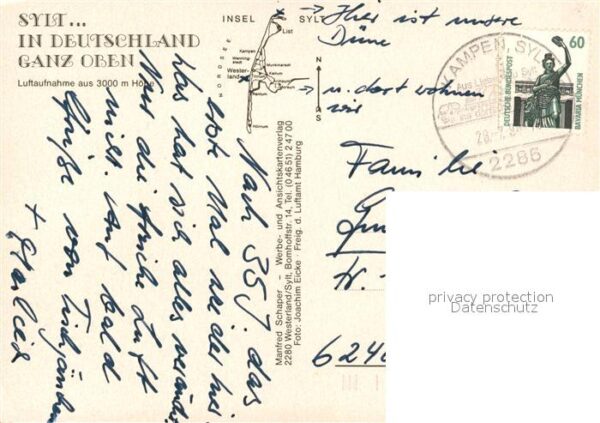 SYLT...
IN DEUTSCHLAND
GANZ OBEN
Luftaufnahme aus 3000 m Höhe
INSEL SYLT
NORDSEE
List
Kampen
Westerland
Keitum
Hörnum
N
S
→ Hier ist unsere
Düne
→ u. dort wohnen
wir
KAMPEN, SYLT
2285
60
DEUTSCHE BUNDESPOST
BAVARIA MÜNCHEN
Nach 35 J. das
erste Mal wieder hier
das hat sich alles verändert
Nur die frische Luft
nicht. Auf bald
Grüße von
+
Familie
6240
Manfred Schaper – Werbe- und Ansichtskartenverlag
2280 Westerland/Sylt, Bomhoffstr. 14, Tel. (0 46 51) 2 47 00
Foto: Joachim Eicke · Freig. d. Luftamt Hamburg
privacy protection
Datenschutz